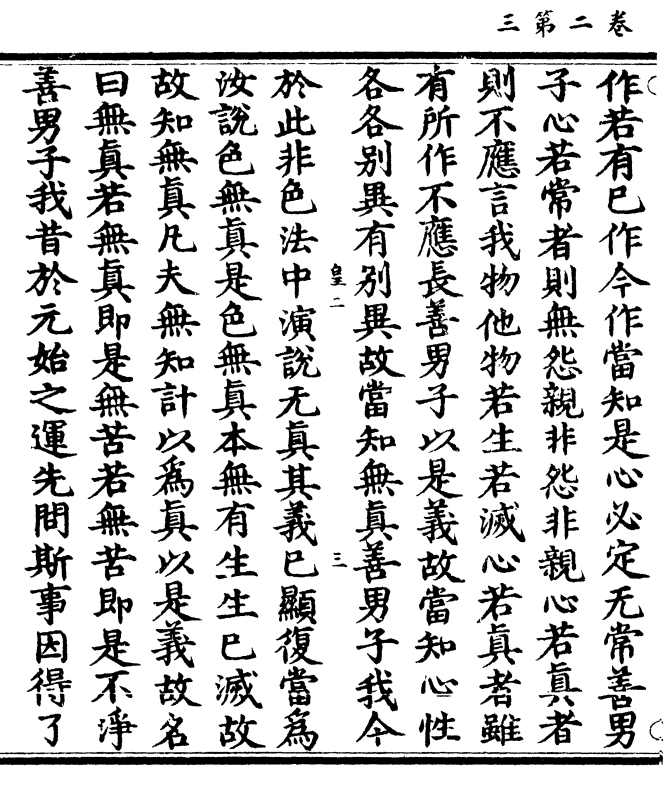 三第二卷
作若有巳作今作當知是心必定无常善男
子心若常者則無怨親非怨非親心若真者
則不應言我物他物若生若滅心若真者雖
有所作不應長善男子以是義故當知心性
各各别異有别異故當知無真善男子我今
皇二
三
於此非色法中演說无真其義巳顯復當為
汝說色無真是色無真本無有生生巳滅故
故知無真凡夫無知計以為真以是義故名
曰無真若無真即是無苦若無苦即是不淨
善男子我昔於元始之運先問斯事因得了